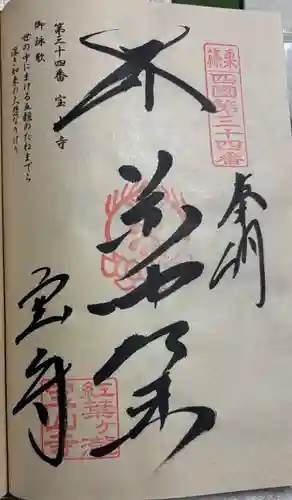 奉納
篠栗
四國第三十四番
紅葉ヶ瀧
宝山寺
宝山寺
第三十四番 宝山寺
御詠歌
世の中にまける五穀のたねまでら
深き如来の大悲なりけり